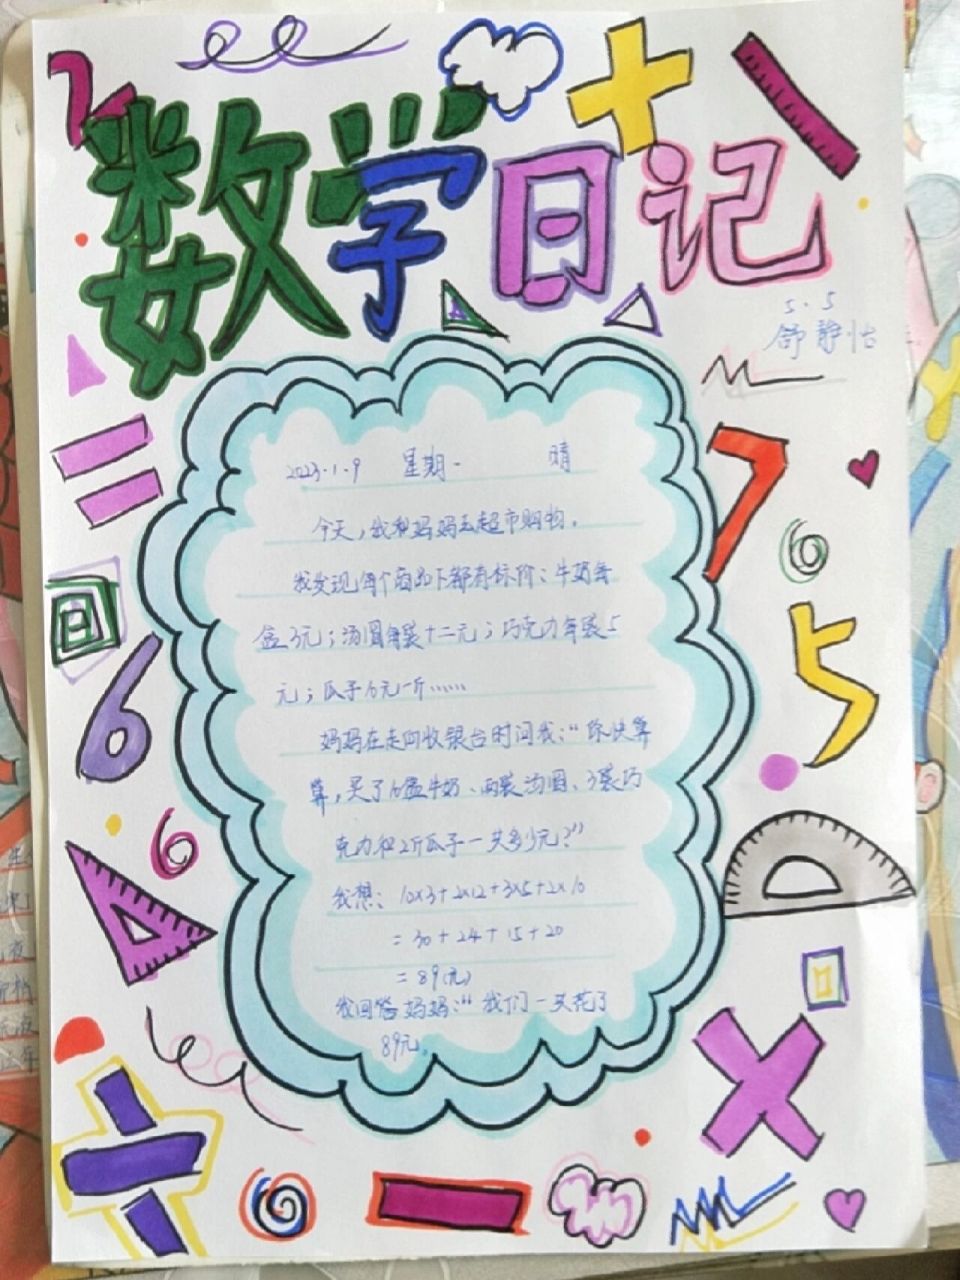 数学日记
5.5
舒静怡
2023.1.9 星期一 晴
今天,我和妈妈去超市购物。
我发现每个商品下都有标价:牛奶每
盒3元;汤圆每袋十二元;巧克力每袋5
元;瓜子10元一斤……
妈妈在走向收银台时问我:“你快算
算,买了10盒牛奶、两袋汤圆、3袋巧
克力和2斤瓜子一共多少元?”
我想:10×3+2×12+3×5+2×10
=30+24+15+20
=89(元)
我回答妈妈:“我们一共花了
89元。
7
6
5
6
6